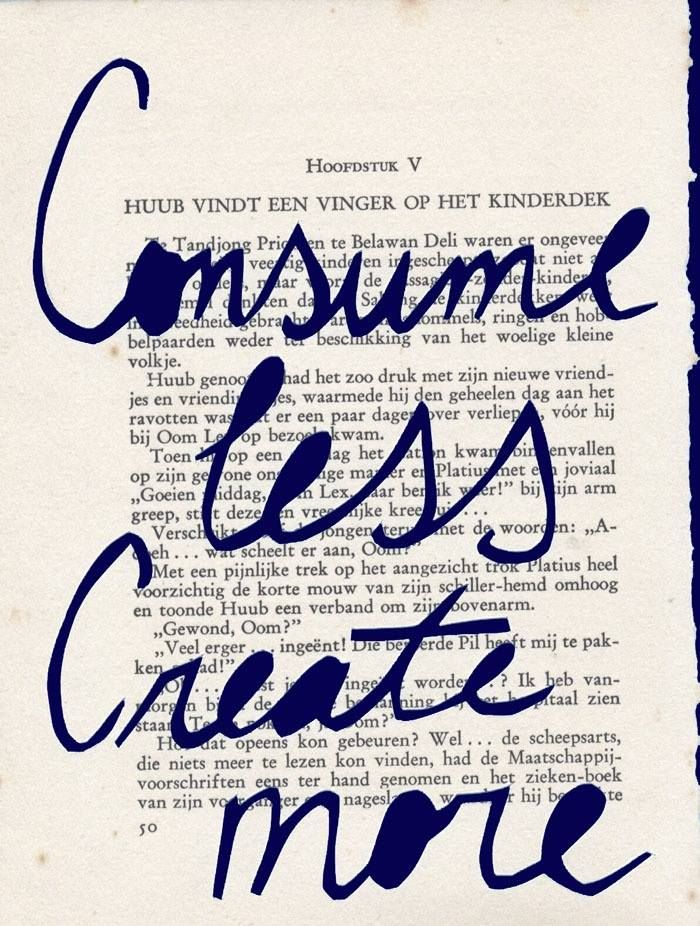 Consume
less
Create
more
Hoofdstuk V
HUUB VINDT EEN VINGER OP HET KINDERDEK
Te Tandjong Priok en te Belawan Deli waren er ongeveer
veertig kinderen ingescheept niet
de
belpaarden weder ter beschikking van het woelige kleine
volkje.
Huub genoot had het zoo druk met zijn nieuwe vriend-
jes en vriendinnetjes, waarmede hij den geheelen dag aan het
ravotten was, dat er een paar dagen over verliepen, vóór hij
bij Oom Lex op bezoek kwam.
Toen hij op een middag het salon kwam binnenvallen
op zijn gewone onstuimige manier en Platius met een joviaal
„Goeien middag, Oom Lex, daar ben ik weer!” bij zijn arm
greep, stiet deze een vreeselijke kreet uit...
Verschrikt de jongen terug met de woorden: „A-
deeh ... wat scheelt er aan, Oom?”
Met een pijnlijke trek op het aangezicht trok Platius heel
voorzichtig de korte mouw van zijn schiller-hemd omhoog
en toonde Huub een verband om zijn bovenarm.
„Gewond, Oom?”
„Veel erger ... ingeënt! Die beroerde Pil heeft mij te pak-
ken gehad!”
ingeënt worden..? Ik heb van-
morgen bij de hospitaal zien
staan.
Hoe dat opeens kon gebeuren? Wel ... de scheepsarts,
die niets meer te lezen kon vinden, had de Maatschappij-
voorschriften eens ter hand genomen en het zieken-boek
van zijn voorganger eens nageslagen, hij
50